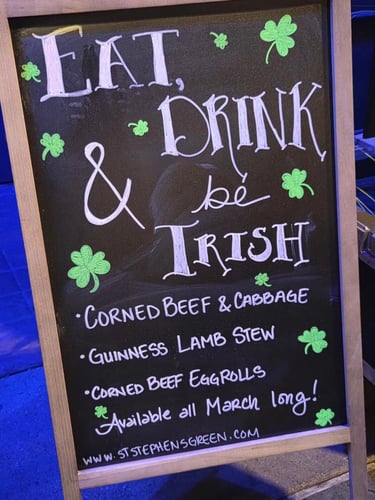 EAT,
DRINK
& be
IRISH
• CORNED BEEF & CABBAGE
• GUINNESS LAMB STEW
• CORNED BEEF EGGROLLS
Available all March long!
WWW.STSTEPHENSGREEN.COM